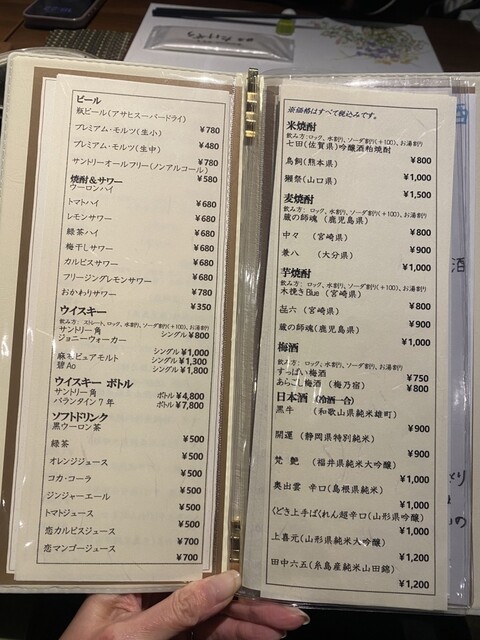 ビール
瓶ビール(アサヒスーパードライ)
¥780
プレミアム・モルツ(生小)
¥480
プレミアム・モルツ(生中)
¥780
サントリーオールフリー(ノンアルコール)
¥580
焼酎&サワー
ウーロンハイ
¥680
トマトハイ
¥680
レモンサワー
¥680
緑茶ハイ
¥680
梅干しサワー
¥680
カルピスサワー
¥680
フリージングレモンサワー
¥780
おかわりサワー
¥350
ウイスキー
飲み方: ストレート、ロック、水割り、ソーダ割り(+100)、お湯割り
サントリー角 シングル¥800
ジョニーウォーカー
シングル¥1,000
麻ピュアモルト シングル¥1,300
碧Ao シングル¥1,800
ウイスキー ボトル
サントリー角 ボトル¥4,800
バランタイン7年 ボトル¥7,800
ソフトドリンク
黒ウーロン茶
¥500
緑茶
¥500
オレンジジュース
¥500
コカ・コーラ
¥500
ジンジャーエール
¥500
トマトジュース
¥500
恋カルピスジュース
¥700
恋マンゴージュース
¥700
※価格はすべて税込みです。
米焼酎
飲み方:ロック、水割り、ソーダ割り(+100)、お湯割り
七田(佐賀県)吟醸酒粕焼酎
¥800
鳥飼(熊本県)
¥1,000
獺祭(山口県)
¥1,500
麦焼酎
飲み方: ロック、水割り、ソーダ割り(+100)、お湯割り
蔵の師魂(鹿児島県)
¥800
中々 (宮崎県)
¥900
兼八 (大分県)
¥1,000
芋焼酎
飲み方: ロック、水割り、ソーダ割り(+100)、お湯割り
木挽きBlue(宮崎県)
¥800
㐂六(宮崎県)
¥900
蔵の師魂(鹿児島県)
¥1,000
梅酒
飲み方: ロック、水割り、ソーダ割り(+100)、お湯割り
すっぱい梅酒 ¥750
あらごし梅酒 (梅乃宿) ¥800
日本酒 (冷酒一合)
黒牛 (和歌山県純米雄町)
¥900
開運 (静岡県特別純米)
¥900
梵 艶 (福井県純米大吟醸)
¥1,000
奥出雲 辛口(島根県純米)
¥1,000
くどき上手ばくれん超辛口(山形県吟醸)
¥1,000
上喜元(山形県純米大吟醸)
¥1,200
田中六五(糸島産純米山田錦)
¥1,200
酒